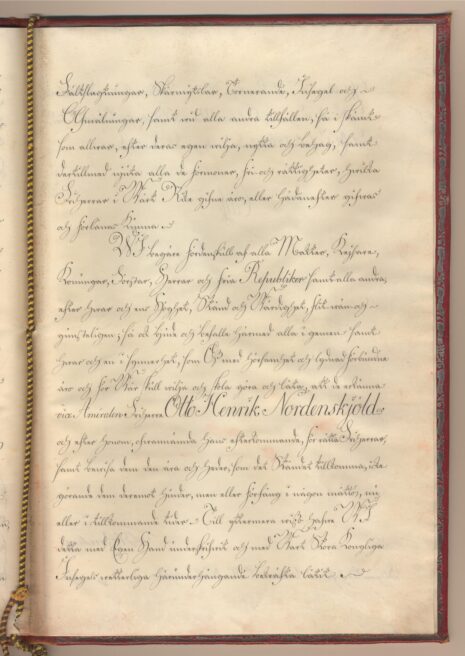 Fältslagtningar, Skärmytslar, Tornerande, Insegel och
Afmålningar, samt wid alla andra tillfällen, så i skämt
som allwar, efter deras egen wilja, nytta och behag, samt
dertillmed njuta alla de förmoner, fri och rättigheter, hwilka
Friherrar i Wårt Rike gifne äro, eller hädanefter gifwas
och förlänas kunna.
WJ begäre fördenskull af alla Magter, Keisare,
Konungar, Förstar, Herrar och fria Republiker samt alla andra,
efter hwars och ens Höghet, Stånd och Wärdighet, flit wän och
gunsteligen; så ock bjude och befalle härmed alla i gemen samt
hwar och en i synnerhet, som Oss med hörsamhet och lydnad förbundne
äro och för Wår skull wilja och skola göra och låta, att de erkänna
vice Amiralen Friherre Otto Henrik Nordenskjöld
och efter honom, ofwannämde Hans efterkommande, för rätta Friherrar,
samt bewisa dem den ära och heder, som det Ståndet tillkomma, icke
görande dem deremot hinder, men eller förfång i någon måtto, nu
eller i tillkommande tider. Till yttermera wisso hafwe WJ
detta med Egen Hand underskrifwit och med Wårt Stora Kongliga
Insegels wetterliga härunderhängande bekräfta låtit.